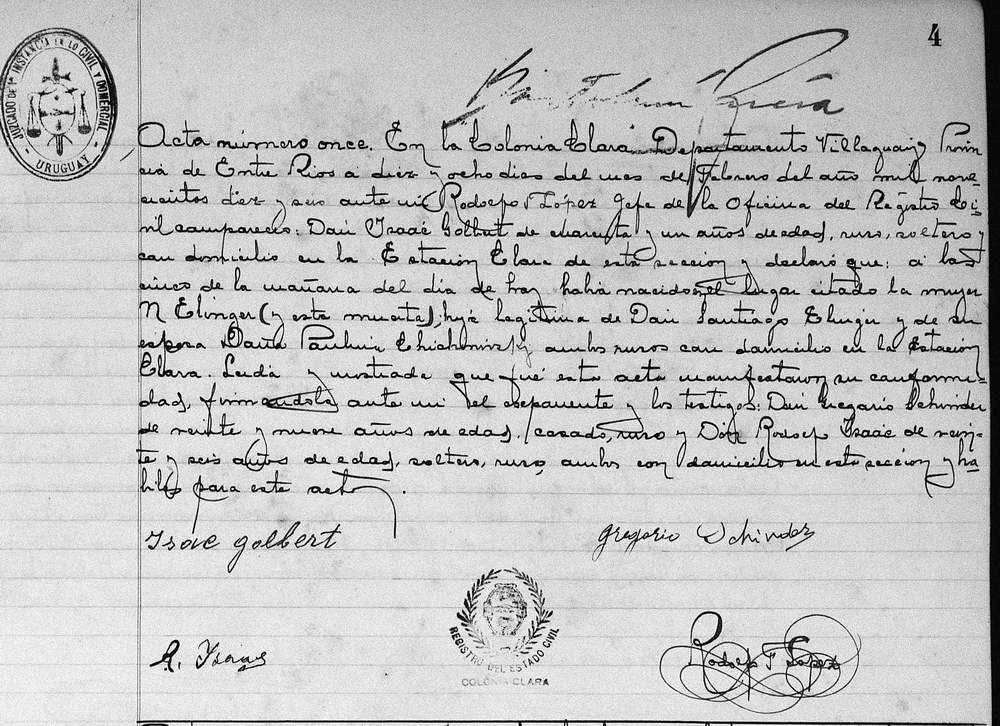 4
JUZGADO DE 1ª INSTANCIA EN LO CIVIL Y COMERCIAL
- URUGUAY -
Acta número once. En la Colonia Clara Departamento Villaguay Provin
cia de Entre Rios a diez y ocho dias del mes de Febrero del año mil nove-
cientos diez y seis ante mi Rodolfo T López Gefe de la Oficina del Registro Ci-
vil comparecio: Don Isaac Golbert de cuarenta y un años de edad, ruso, soltero y
con domicilio en la Estacion Clara de esta seccion y declaró que: a las
cinco de la mañana del dia de hoy habia nacido en el lugar citado la mujer
N Elinger (y esta muerta), hija legitima de Don Santiago y de su
esposa Doña Paulina ambos rusos con domicilio en la Estacion
Clara. Leida y mostrada que fué esta acta manifestaron su conformi-
dad, firmandola ante mi el esponente y los testigos: Don Gregorio Schinder
de veinte y nueve años de edad, casado, ruso y Don Rodolfo Isaac de vein-
te y seis años de edad, soltero, ruso, ambos con domicilio en esta seccion y há-
biles para este acto.
Isac golbert
gregorio Schinder
REGISTRO DEL ESTADO CIVIL
COLONIA CLARA
R. Isaac
Rodolfo T López